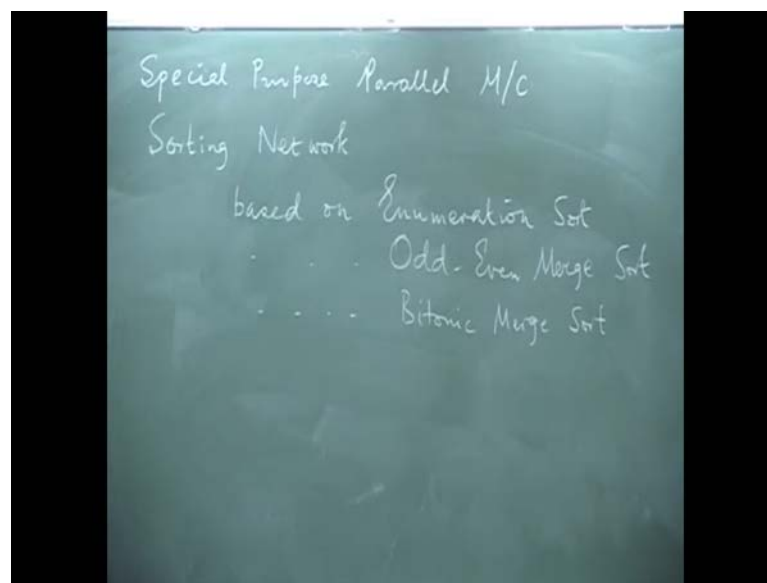 Special Purpose Parallel M/C
Sorting Network
based on Enumeration Sort
. . . Odd-Even Merge Sort
. . . . Bitonic Merge Sort